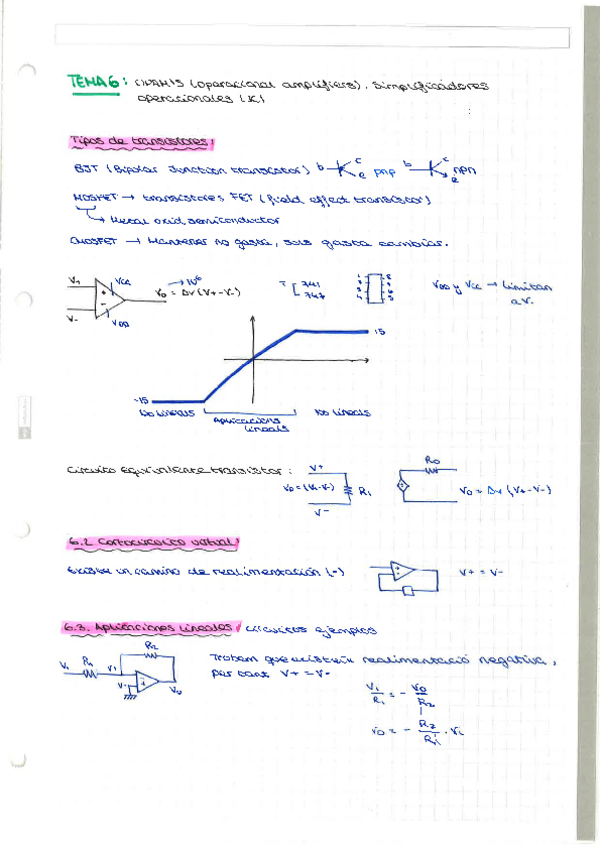 TEMA 6: OPAMPS (operacional amplifiers), simplificadores
operacionales (IC)
Tipos de transistores:
BJT (Bipolar Junction transistor) b c e pnp b c e npn
MOSFET → transistores FET (field effect transistor)
↳ Metal oxid semiconductor
CMOSFET → Mantener no gasta, solo gasta cambiar.
V+ VCC V- VDD
Vo = Av (V+ - V-) → 10⁶
741
747
VDD y VCC → limitan
a V.
15
-15
No lineals Aplicacions lineals No lineals
Circuito equivalente transistor:
V+ Vo = (V+-V-) Ri V-
Ro Vo = Av (V+-V-)
6.2 Cortocircuito virtual:
Existe un camino de realimentación (-)
V+ = V-
6.3. Aplicaciones lineales: circuitos ejemplos
Vi R1 V1 R2 V- Vo
Trobem que existeix realimentació negativa,
per tant V+ = V-
Vi/R1 = - Vo/R2
Vo = - R2/R1 · Vi